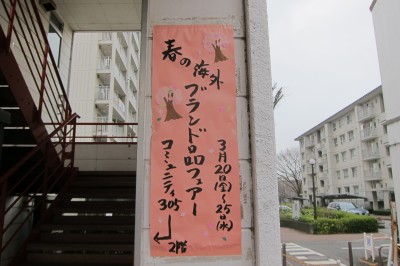 春の海外
ブランド品フェアー
3月20日(金)~25日(水)
コミュニティ305
2階